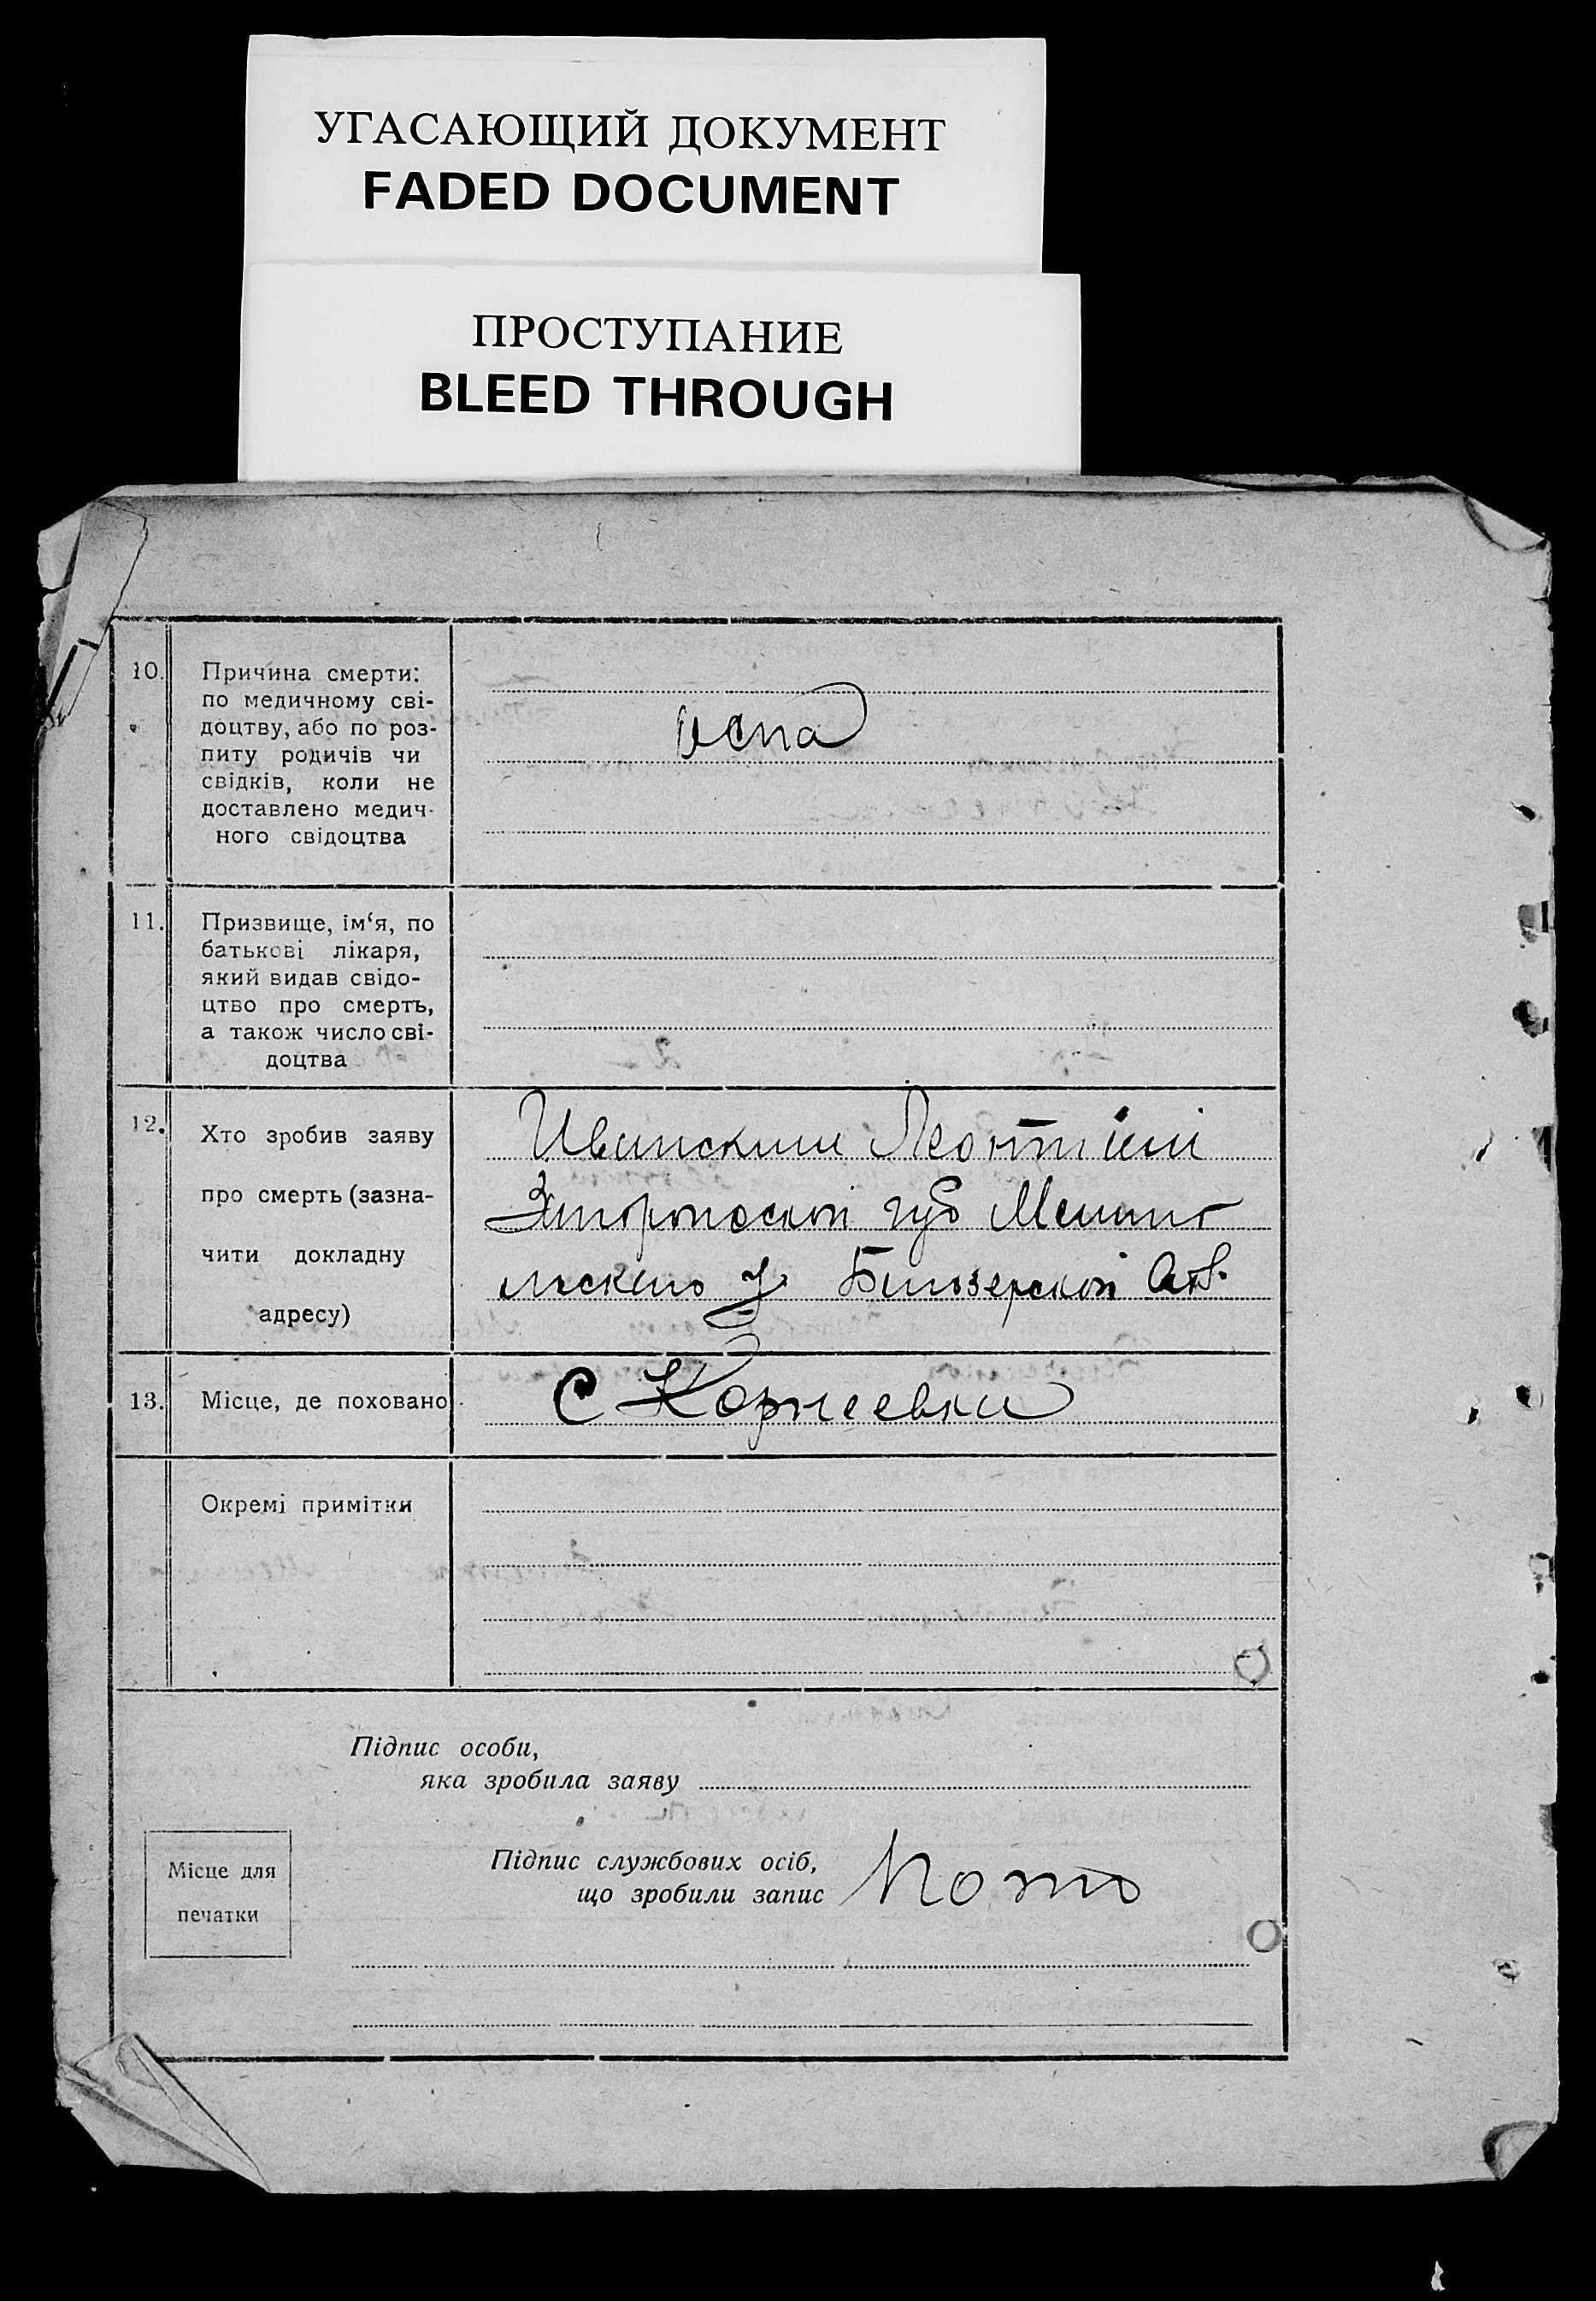 УГАСАЮЩИЙ ДОКУМЕНТ
FADED DOCUMENT
ПРОСТУПАНИЕ
BLEED THROUGH
10.
Причина смерти:
по медичному сві-
доцтву, або по роз-
питу родичів чи
свідків, коли не
доставлено медич-
ного свідоцтва
оспа
11.
Призвище, ім‘я, по
батькові лікаря,
який видав свідо-
цтво про смерть,
а також число сві-
доцтва
12.
Хто зробив заяву
про смерть (зазна-
чити докладну
адресу)
Леонтий
губ
у Билозерской
13.
Місце, де поховано
С Корнеевки
Окремі примітки
Підпис особи,
яка зробила заяву
Місце для
печатки
Підпис службових осіб,
що зробили запис